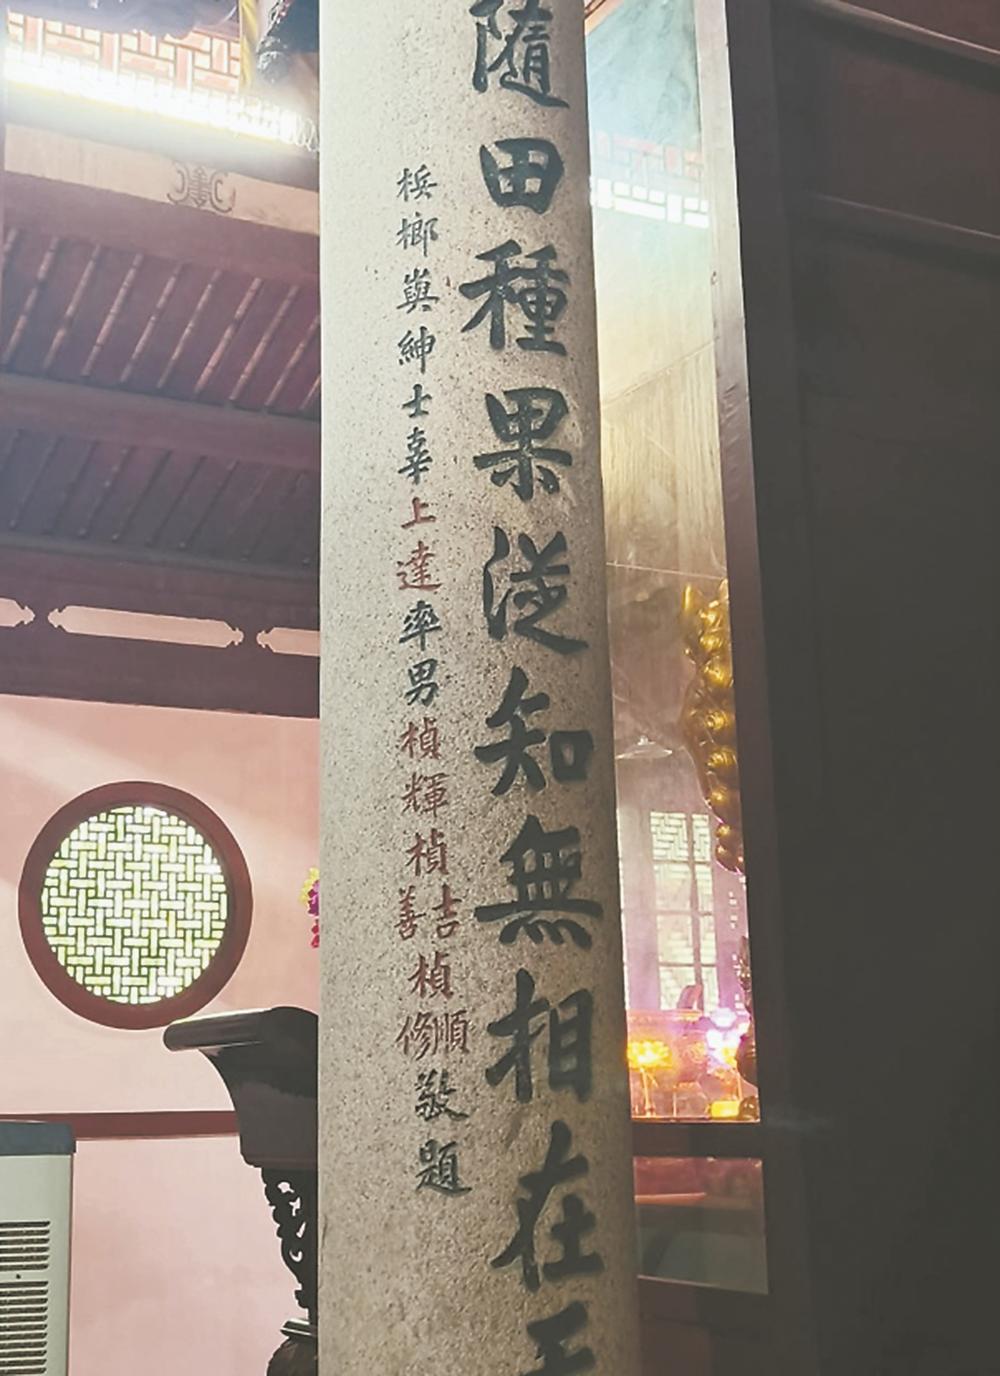 隨田種果從知無相在
梹榔嶼紳士辜上達率男楨輝楨吉善楨順修敬題